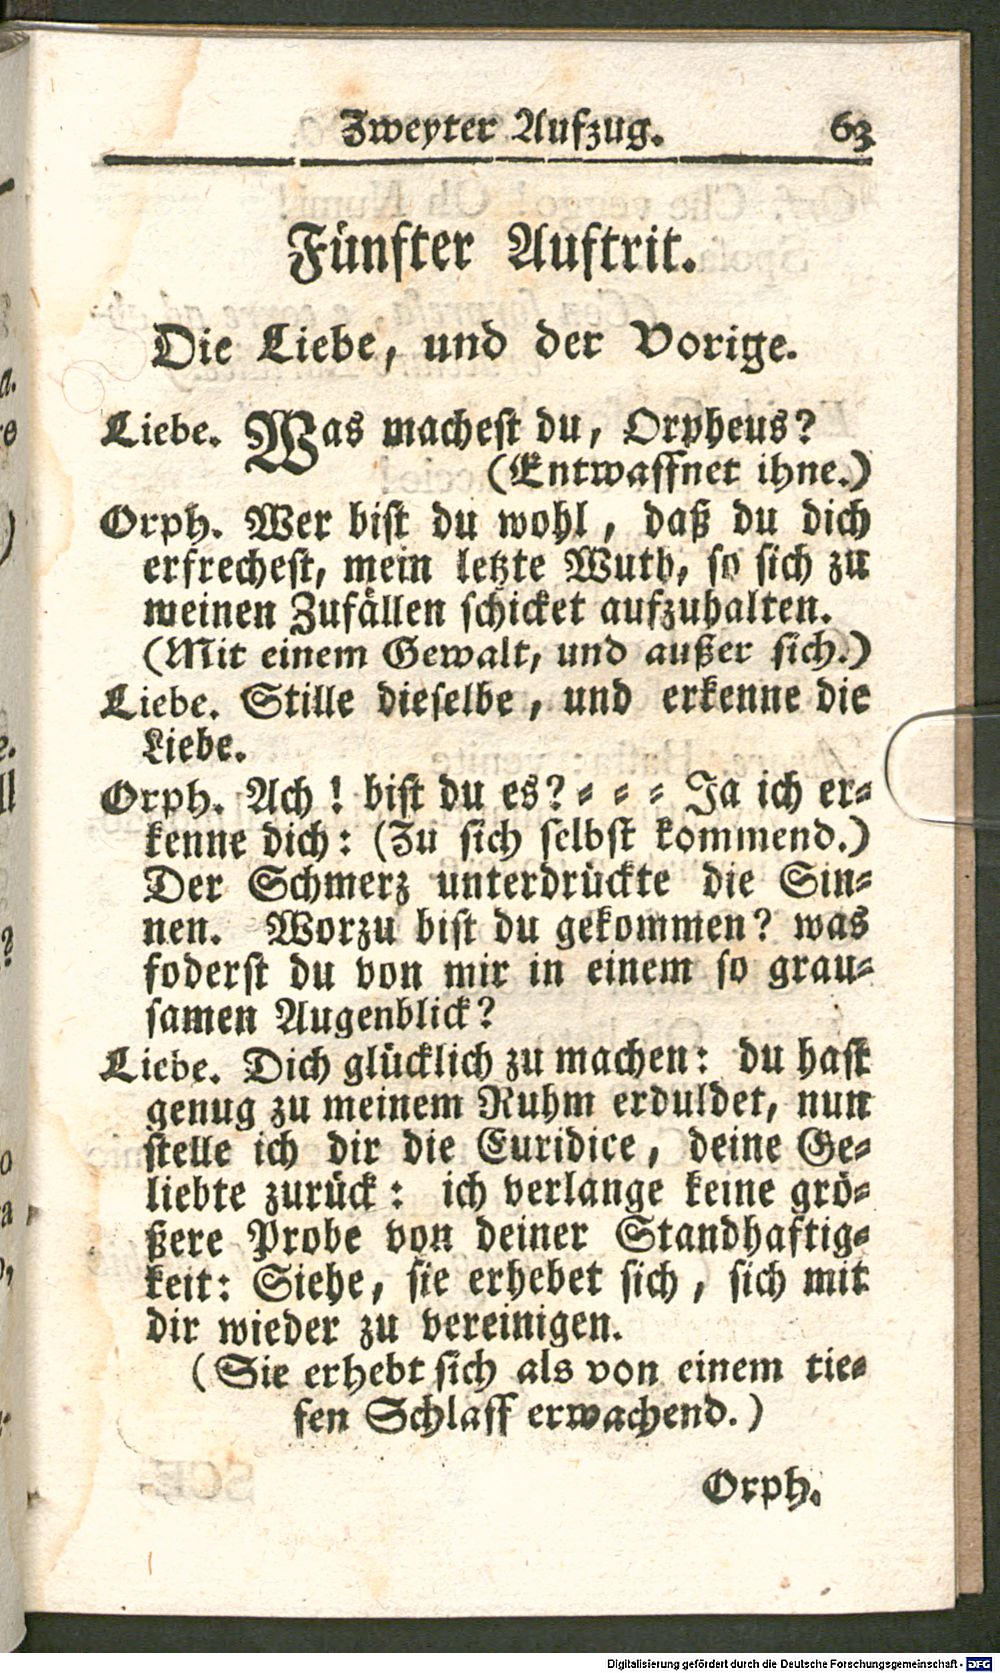 Zweyter Aufzug. 63
Fünfter Auftrit.
Die Liebe, und der Vorige.
Liebe. Was machest du, Orpheus?
(Entwaffnet ihne.)
Orph. Wer bist du wohl, daß du dich
erfrechest, mein letzte Wuth, so sich zu
meinen Zufällen schicket aufzuhalten.
(Mit einem Gewalt, und außer sich.)
Liebe. Stille dieselbe, und erkenne die
Liebe.
Orph. Ach! bist du es? = = = Ja ich er=
kenne dich: (Zu sich selbst kommend.)
Der Schmerz unterdrückte die Sin=
nen. Worzu bist du gekommen? was
foderst du von mir in einem so grau=
samen Augenblick?
Liebe. Dich glücklich zu machen: du hast
genug zu meinem Ruhm erduldet, nun
stelle ich dir die Euridice, deine Ge=
liebte zurück: ich verlange keine grö=
ßere Probe von deiner Standhaftig=
keit: Siehe, sie erhebet sich, sich mit
dir wieder zu vereinigen.
(Sie erhebt sich als von einem tie=
fen Schlaff erwachend.)
Orph.
Digitalisierung gefördert durch die Deutsche Forschungsgemeinschaft - DFG